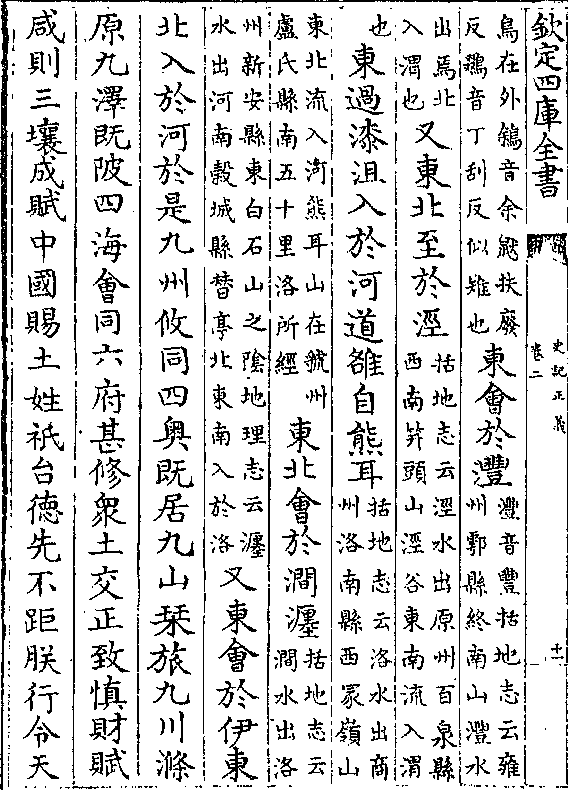 欽定四庫全書
史記正義
卷二
十一
鳥在外鵌音余鼣扶廢
反鵽音丁刮反似雉也
東會於灃
灃音豐括地志云雍
州鄠縣終南山灃水
出焉北
入渭也
又東北至於涇
括地志云涇水出原州百泉縣
西南笄頭山涇谷東南流入渭
也
東過漆沮入於河道雒自熊耳
括地志云洛水出商
州洛南縣西冡嶺山
東北流入河熊耳山在虢州
盧氏縣南五十里洛所經
東北會於澗瀍
括地志云
澗水出洛
州新安縣東白石山之陰地理志云瀍
水出河南穀城縣朁亭北東南入於洛
又東會於伊東
北入於河於是九州攸同四奥既居九山栞旅九川滌
原九澤既陂四海會同六府甚修衆土交正致慎財賦
咸則三壤成賦中國賜土姓祇台徳先不距朕行令天